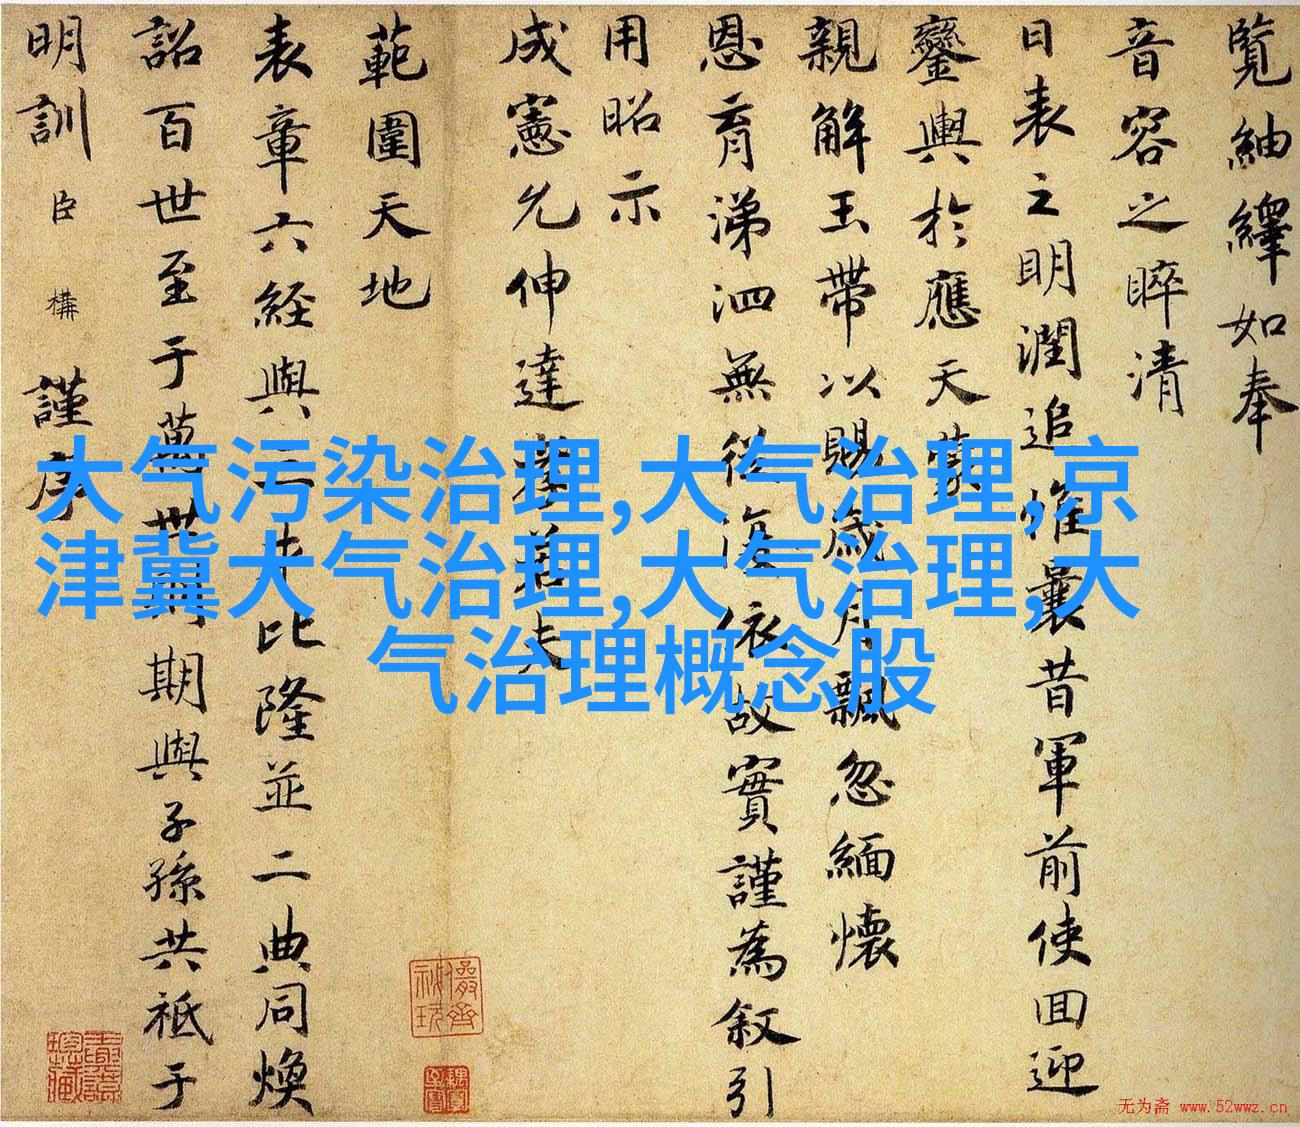 覽紬繹如奉
音容之睟清
日表之明潤追惟曩昔軍前使回迎
鑾輿於應天蒙
親解玉帶以賜歲月飄忽緬懷
恩育涕泗無從復依故實謹為叙引
用昭示
成憲允伸達孝若夫
範圍天地
表章六經與三比隆並二典同煥
詔百世至于萬世期與子孫共祗于
明訓臣構謹序
大气污染治理,大气治理,京
津冀大气治理,大气治理,大
气治理概念股
无为斋 www.52wwz.cn